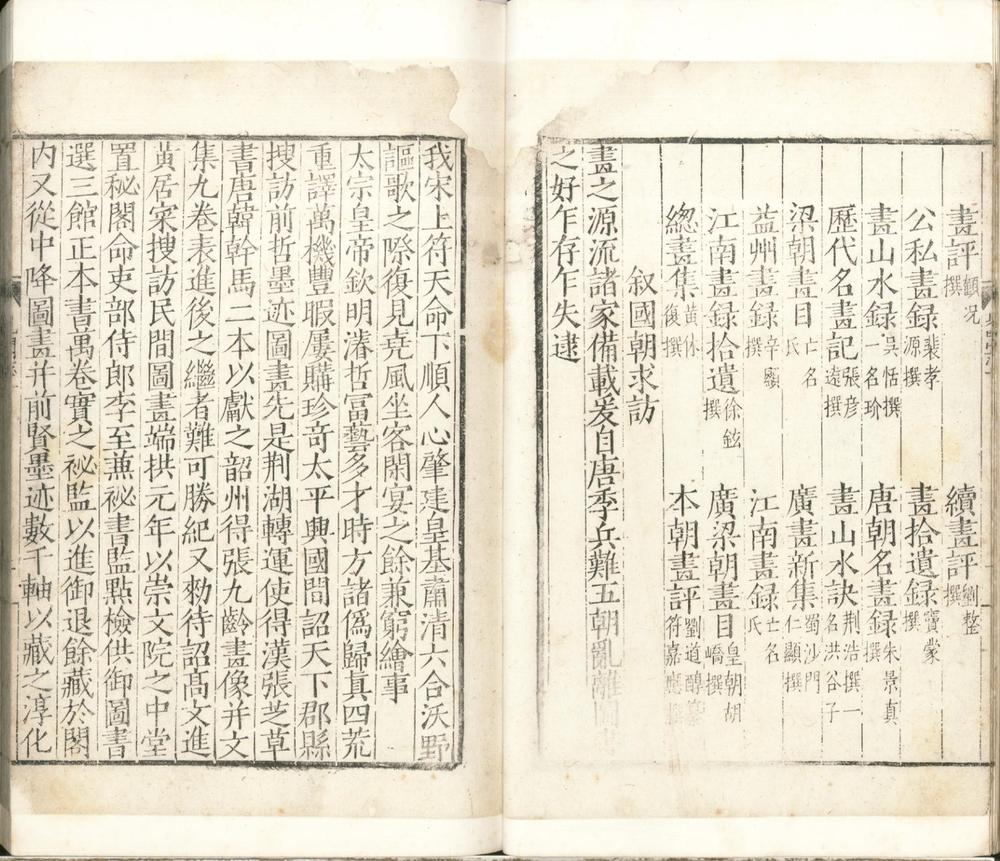 畫評顧况撰 續畫評劉整撰
公私畫錄裴孝源撰 畫拾遺錄竇蒙撰
畫山水録吳恬撰一名玠 唐朝名畫録朱景真撰
歷代名畫記張彦遠撰 畫山水訣荆浩撰一名洪谷子
梁朝畫目亡名氏 廣畫新集蜀沙門仁顯撰
益州畫録辛顯撰 江南畫録亡名氏
江南畫録拾遺徐鉉撰 廣梁朝畫目皇朝胡嶠撰
總畫集黄休復撰 本朝畫評劉道醇纂符嘉應撰
叙國朝求訪
畫之源流諸家備載爰自唐季兵難五朝亂離圖
之好乍存乍失逮
我宋上符天命下順人心肇建皇基肅清六合沃野
謳歌之際復見堯風坐客閑宴之餘兼窮繪事
太宗皇帝欽明濬哲富藝多才時方諸僞歸真四荒
重譯萬機豐暇屢購珍奇太平興國間詔天下郡縣
搜訪前哲墨迹圖畫先是荆湖轉運使得漢張芝草
書唐韓幹馬二本以獻之韶州得張九齡畫像并文
集九卷表進後之繼者難可勝紀又勑待詔髙文進
黄居寀搜訪民間圖畫端拱元年以崇文院之中堂
置秘閣命吏部侍郎李至兼祕書監點檢供御圖書
選三館正本書萬卷實之祕監以進御退餘藏於閣
内又從中降圖畫并前賢墨迹數千軸以藏之淳化